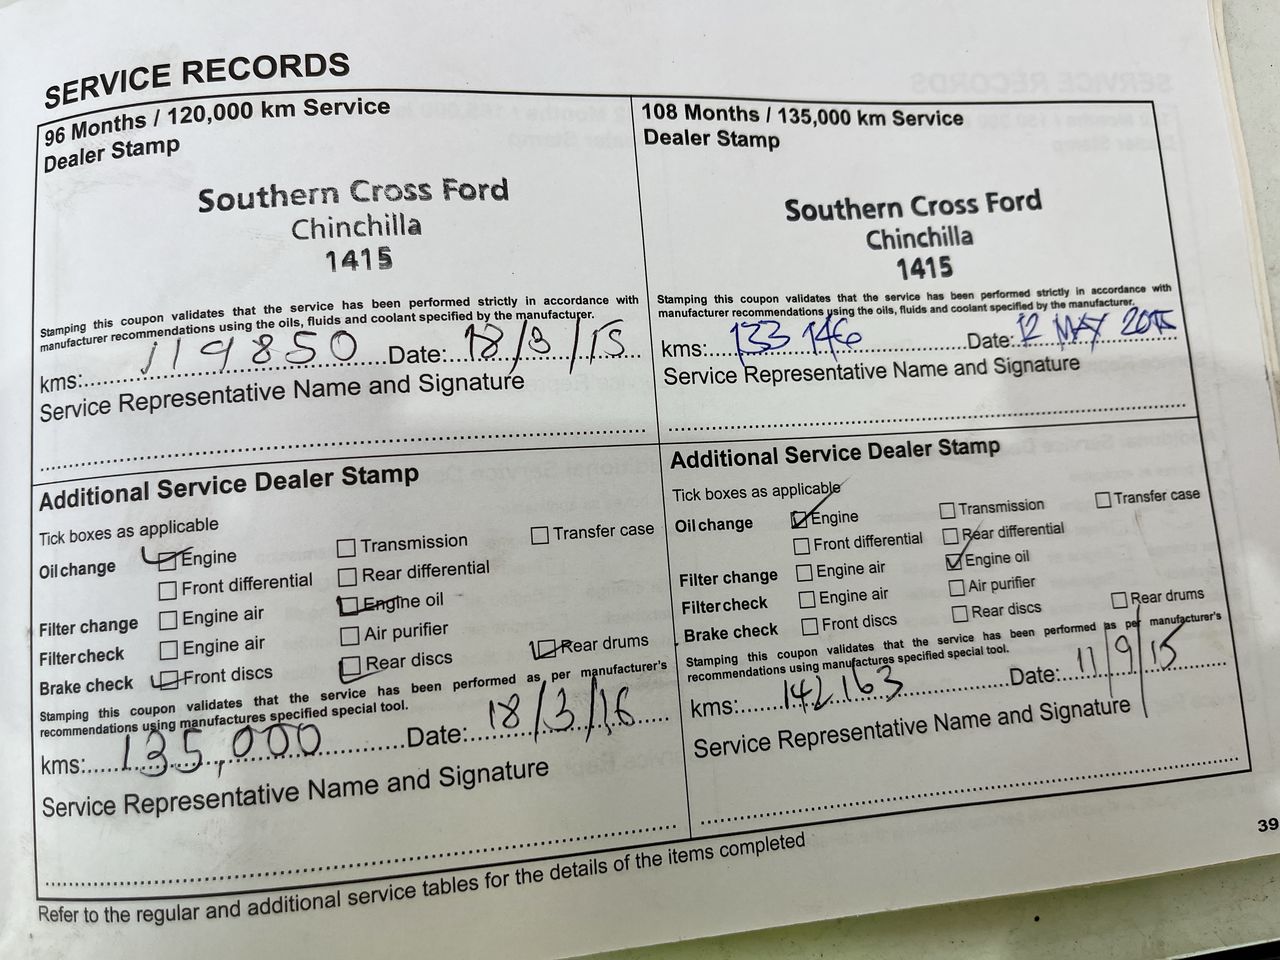 SERVICE RECORDS
96 Months / 120,000 km Service
Dealer Stamp
Southern Cross Ford
Chinchilla
1415
Stamping this coupon validates that the service has been performed strictly in accordance with
manufacturer recommendations using the oils, fluids and coolant specified by the manufacturer.
kms: 119850 Date: 18/3/15
Service Representative Name and Signature
108 Months / 135,000 km Service
Dealer Stamp
Southern Cross Ford
Chinchilla
1415
Stamping this coupon validates that the service has been performed strictly in accordance with
manufacturer recommendations using the oils, fluids and coolant specified by the manufacturer.
kms: 133 146 Date: 12 MAY 2015
Service Representative Name and Signature
Additional Service Dealer Stamp
Tick boxes as applicable
Oil change Engine Transmission Transfer case
Front differential Rear differential
Filter change Engine air Engine oil
Filter check Engine air Air purifier
Brake check Front discs Rear discs Rear drums
Stamping this coupon validates that the service has been performed as per manufacturer's
recommendations using manufactures specified special tool.
kms: 135,000 Date: 18/3/16
Service Representative Name and Signature
Additional Service Dealer Stamp
Tick boxes as applicable
Oil change Engine Transmission Transfer case
Front differential Rear differential
Filter change Engine air Engine oil
Filter check Engine air Air purifier
Brake check Front discs Rear discs Rear drums
Stamping this coupon validates that the service has been performed as per manufacturer's
recommendations using manufactures specified special tool.
kms: 142163 Date: 11/9/15
Service Representative Name and Signature
Refer to the regular and additional service tables for the details of the items completed
39